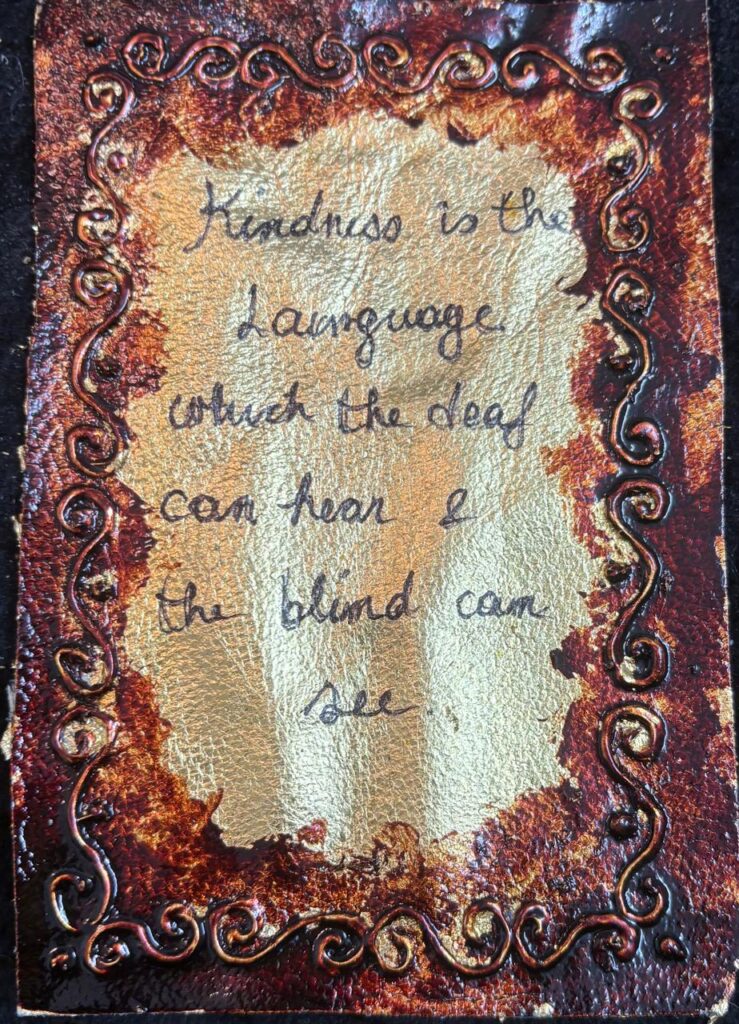 Kindness is the
Language.
which the deaf
can hear &
the blind can
see.